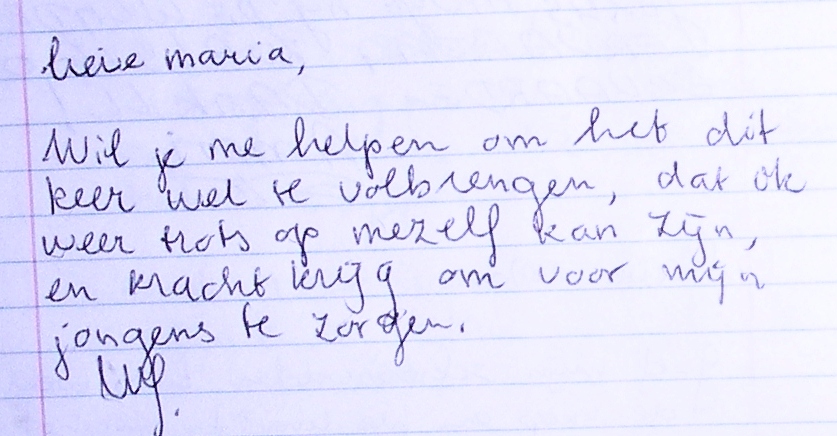 lieve maria,
Wil je me helpen om het dit
keer wel te volbrengen, dat ik
weer trots op mezelf kan zijn,
en kracht krijg om voor mijn
jongens te zorgen.